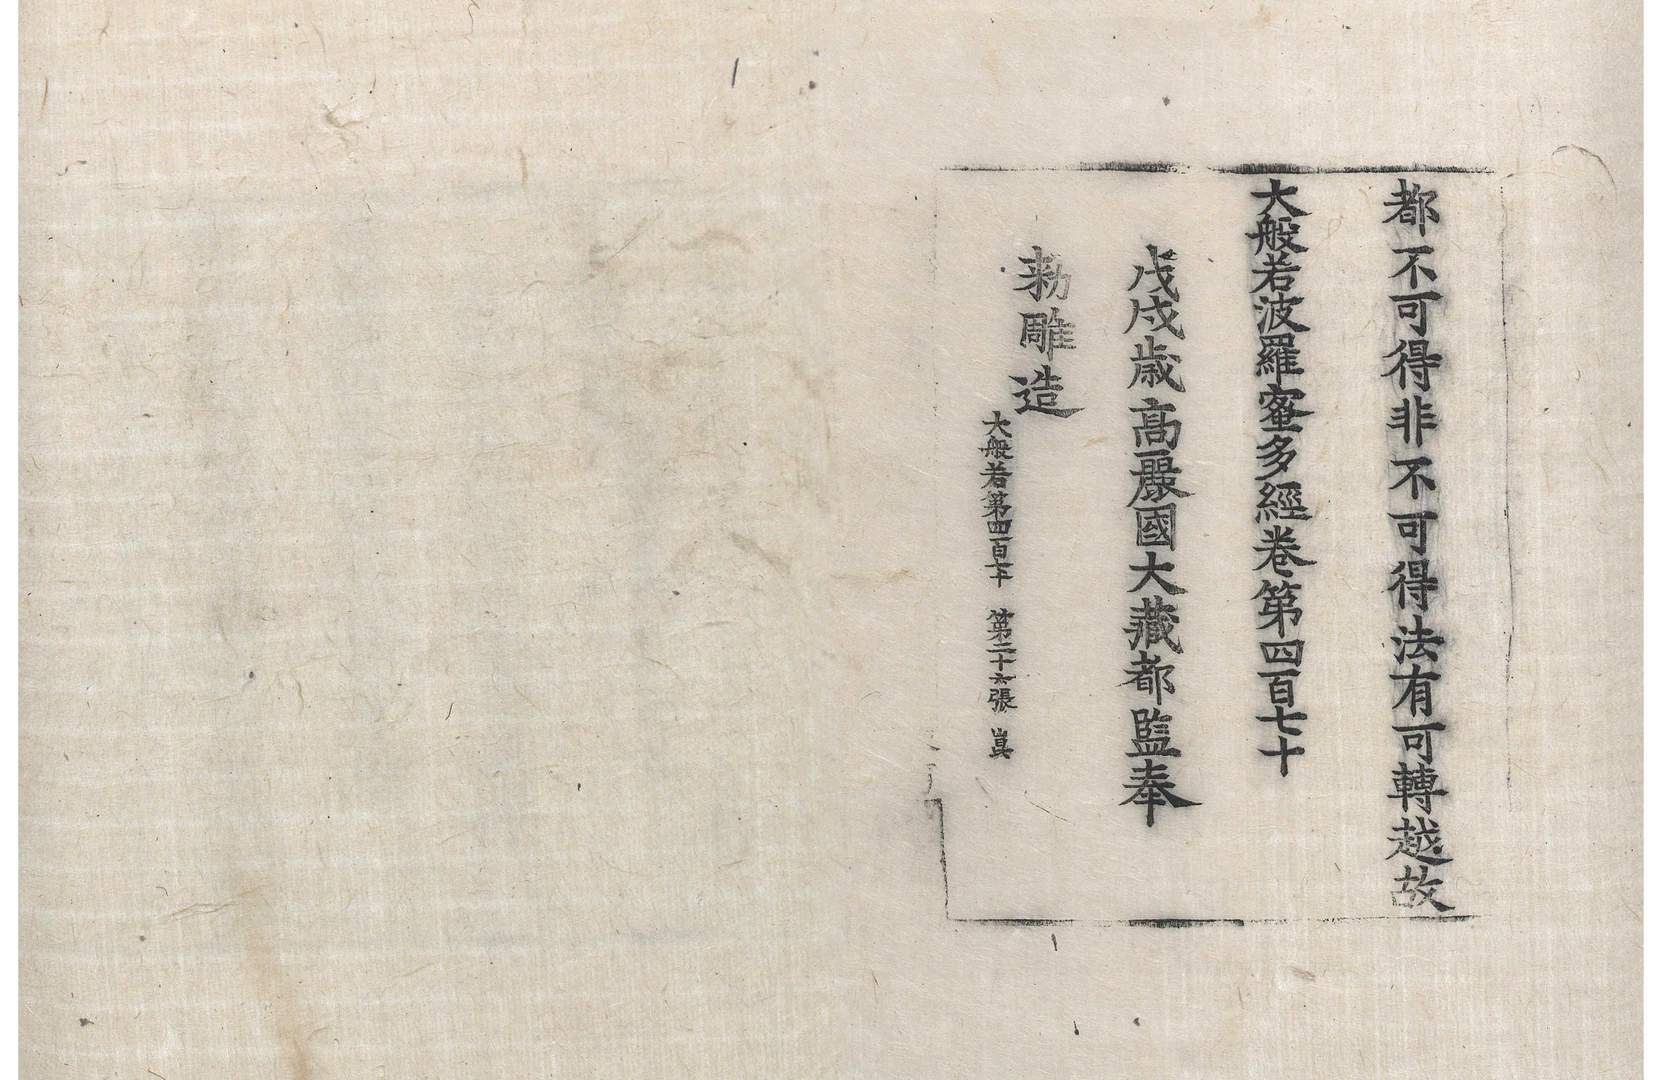 都不可得非不可得法有可轉越故
大般若波羅蜜多經卷第四百七十
戊戌歲高麗國大藏都監奉
勑雕造
大般若第四百七十 第二十六張